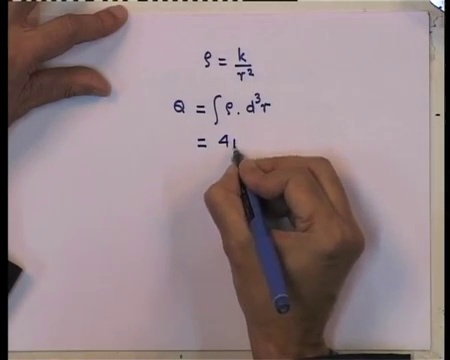 ρ = k/r²
Q = ∫ ρ. d³r
= 4